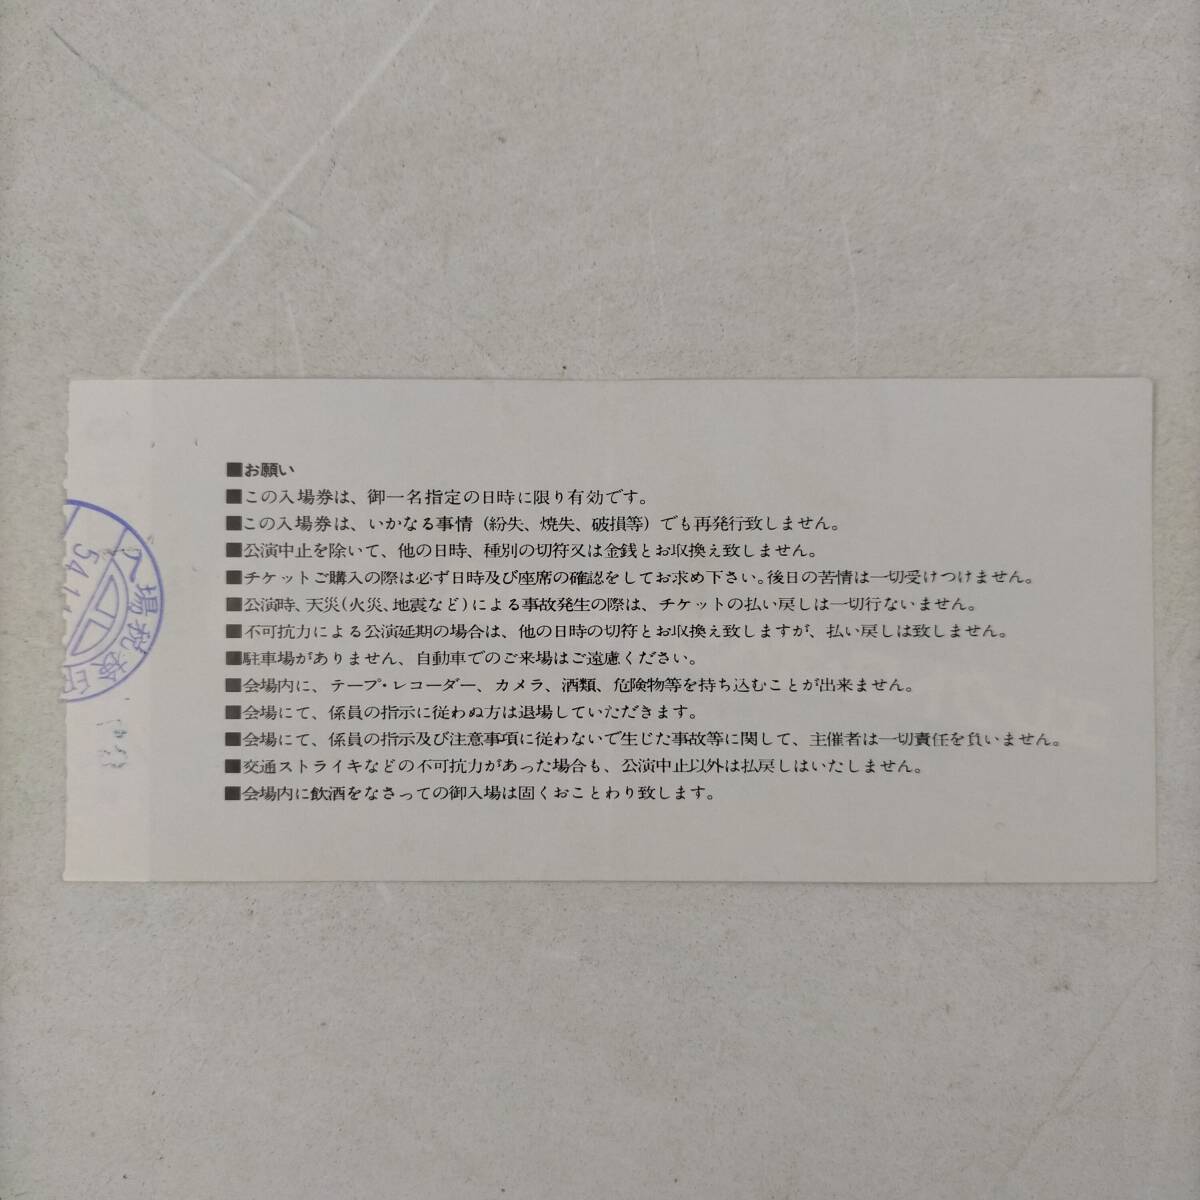 ■お願い
■この入場券は、御一名指定の日時に限り有効です。
■この入場券は、いかなる事情（紛失、焼失、破損等）でも再発行致しません。
■公演中止を除いて、他の日時、種別の切符又は金銭とお取換え致しません。
■チケットご購入の際は必ず日時及び座席の確認をしてお求め下さい。後日の苦情は一切受けつけません。
■公演時、天災（火災、地震など）による事故発生の際は、チケットの払い戻しは一切行ないません。
■不可抗力による公演延期の場合は、他の日時の切符とお取換え致しますが、払い戻しは致しません。
■駐車場がありません、自動車でのご来場はご遠慮ください。
■会場内に、テープ・レコーダー、カメラ、酒類、危険物等を持ち込むことが出来ません。
■会場にて、係員の指示に従わぬ方は退場していただきます。
■会場にて、係員の指示及び注意事項に従わないで生じた事故等に関して、主催者は一切責任を負いません。
■交通ストライキなどの不可抗力があった場合も、公演中止以外は払戻しはいたしません。
■会場内に飲酒をなさっての御入場は固くおことわり致します。
入場税検印
54.1